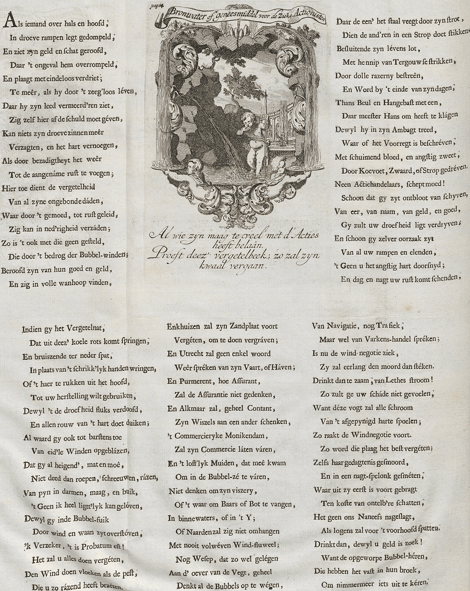 Bronwater of geneesmiddel voor de Zieke Actionisten
Als iemand over hals en hoofd,
In droeve rampen legt gedompeld,
En ziet zyn geld en schat geroofd,
Daar 't ongeval hem overrompeld,
En plaagt met eindeloos verdriet;
Te meêr, als hy door 't zorg'loos léven,
Daar hy zyn leed vermeerd'ren ziet,
Zig zelf hier af de schuld moet géven,
Kan niets zyn droeve zinnen meêr
Verzagten, en het hart vernoegen,
Als door bezadigtheyt het weêr
Tot de aangenáme rust te voegen;
Hier toe dient de vergetelheid
Van al zyne ongebonde dáden,
Waar door 't gemoed, tot rust geleid,
Zig kan in ned'righeid verzáden;
Zo is 't ook met die geen gesteld,
Die door 't bedrog der Bubbel-winden;
Beroofd zyn van hun goed en geld,
En zig in volle wanhoop vinden,
Al wie zyn maag te veel met d'Acties
heeft belaân.
Proeft deez' vergetelbeek; zo zal zyn
kwaal vergaan.
Daar de een' het staal veegt door zyn strot,
Dien de and'ren in een Strop doet stikken,
Besluitende zyn lévens lot,
Met hennip van Tergouw te strikken,
Door dolle razerny bestreên,
En Word by 't einde van zyn dagen,
Thans Beul en Hangebast met een,
Daar meester Hans om heeft te klágen
Dewyl hy in zyn Ambagt treed,
Waar of het Voorregt is beschréven;
Met schuimend bloed, en angstig zweet,
Door Koevoet, Zwaard, of Strop gedréven.
Neen Actiehandelaars, schept moed!
Schoon dat gy zyt ontbloot van schyven,
Van eer, van nam, van geld, en goed,
Gy zult uw droefheid ligt verdryven;
En schoon gy zelver oorzaak zyt
Van al uw rampen en elenden,
't Geen u het angstig hart doorsnyd;
En dag en nagt uw rust komt schenden,
Indien gy het Vergetelnat,
Dat uit deez' koele rots komt springen,
En bruizende ter neder spat,
In plaats van 't schrikk'lyk handen wringen,
Of 't haer te rukken uit het hoofd,
Tot uw herstelling wilt gebruiken,
Dewyl 't de droefheid stuks verdoofd,
En allen rouw van 't hart doet duiken;
Al waard gy ook tot barstens toe
Van eid'le Winden opgeblázen,
Dat gy al heigend', mat en moê,
Niet deed dan roepen, schreeuwen, rázen,
Van pyn in darmen, maag, en buik,
't Geen ik heel ligt'lyk kan gelóven,
Dewyl gy inde Bubbel-fuik
Door wind en waan zyt overstóven,
'k Verzeker, 't is Probatum est!
Het zal u alles doen vergéten,
Den Wind doen vloeken als de pest,
Die u zo rázend heeft
Enkhuizen zal zyn Zandplaat voort
Vergéten, om te doen vergráven;
En Utrecht zal geen enkel woord
Weêr spréken van zyn Vaart, of Háven;
En Purmerent, hoe Assurant,
Zal de Assurantie niet gedenken,
En Alkmaar zal, geheel Contant,
Zyn Wiszels aan een ander schenken,
't Commercieryke Monikendam,
Zal zyn Commercie láten váren,
En 't loss'lyk Muiden, dat meê kwam
Om in de Bubbel-zé te váren,
Niet denken om zyn viszery,
Of 't waar om Baars of Bot te vangen,
In binnewaters, of in 't Y;
Of Naarden zal zig niet omhangen
Met nooit volwéven Wind-fluweel;
Nog Wesep, dat zo wel gelégen
Aan d' oever van de Vegt, geheel
Denkt al de Bubbels op te wégen,
Van Navigatie, nog Trafiek,
Maar wel van Varkens-handel spréken;
Is nu de wind-negotie ziek,
Zy zal eerlang den moord dan stéken.
Drinkt dan te zaam, van Lethes stroom!
Zo zulx ge uw schade niet gevoelen,
Want déze vogt zal alle schroom
Van 't afgepynigd harte spoelen;
Zo raakt de Windnegotie voort.
Zo word die plaag het best vergéten;
Zelfs haar gedagtenis gesmoord,
En in een nagt-spelonk gesméten,
Waar uit zy eerst is voort gebragt
Ten koste van ontelb're schatten;
Het geen ons Naneefs nageslagt,
Als logens zal voor 't voorhoofd spatten.
Drinkt dan, dewyl u geld is zoek!
Want de opgeworpe Bubbel-héren,
Die hebben het vast in hun broek,
Om nimmermeer iets uit te kéren.